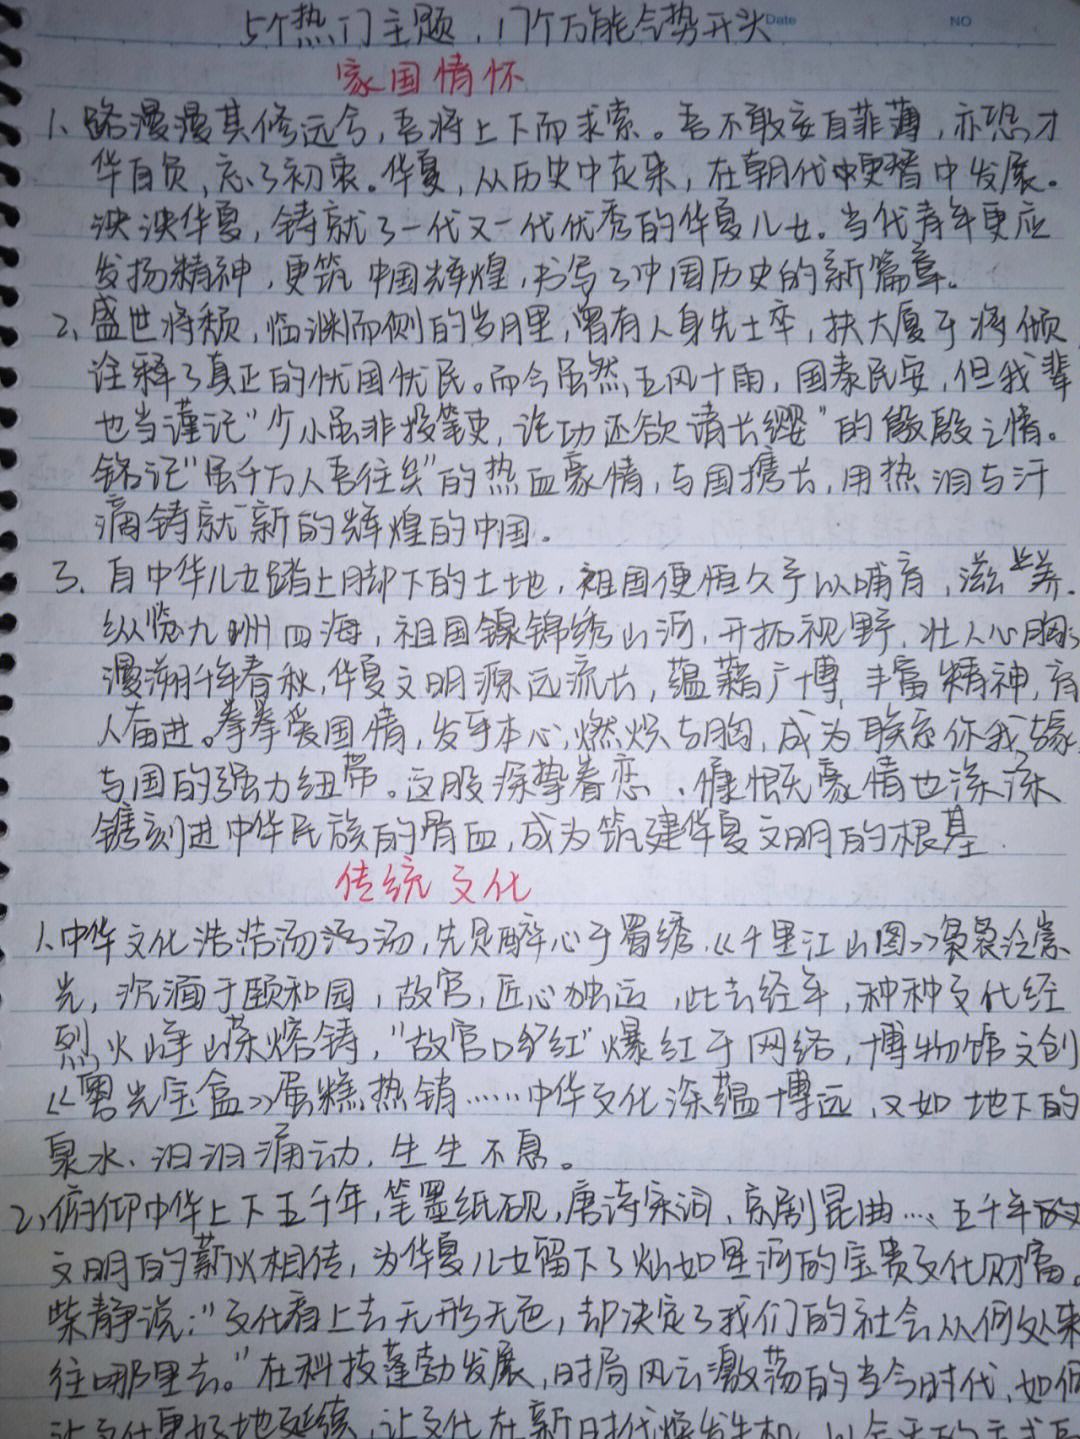 5个热门主题，17个万能气势开头
Date
NO
家国情怀
1、路漫漫其修远兮，吾将上下而求索。吾不敢妄自菲薄，亦恐才
华自负，忘了初衷。华夏，从历史中走来，在朝代更替中发展。
泱泱华夏，铸就了一代又一代优秀的华夏儿女。当代青年更应
发扬精神，更筑中国辉煌，书写了中国历史的新篇章。
2、盛世将颓，临渊而侧的岁月里，曾有人身先士卒，扶大厦于将倾
诠释了真正的忧国忧民。而今虽然五风十雨，国泰民安，但我辈
也当谨记"少小虽非投笔吏，论功还欲请长缨"的殷殷之情。
铭记"虽千万人吾往矣"的热血豪情，与国携长，用热泪与汗
滴铸就新的辉煌的中国。
3、自中华儿女踏上脚下的土地，祖国便恒久予以哺育，滋养.
纵览九州四海，祖国锦绣山河，开拓视野，壮人心胸；
漫溯千年春秋，华夏文明源远流长，蕴藉广博，丰富精神，育
人奋进。拳拳爱国情，发乎本心，燃炽与胸，成为联系你我，家
与国的强力纽带。这股深挚眷恋、慷慨豪情也深深
镌刻进中华民族的骨血，成为筑建华夏文明的根基.
传统文化
1、中华文化浩浩汤汤，先是醉心于蜀绣《千里江山图》袅袅
光，沉湎于颐和园，故宫，匠心独运，此去经年，种种文化经
烈火淬炼熔铸，"故宫口红"爆红于网络，博物馆文创
《粤光宝盒》蛋糕热销……中华文化深蕴博远，又如地下的
泉水、汩汩涌动，生生不息。
2、俯仰中华上下五千年，笔墨纸砚，唐诗宋词，京剧昆曲…、五千年的
文明的薪火相传，为华夏儿女留下了灿如星河的宝贵文化财富。
柴静说："文化看上去无形无色，却决定了我们的社会从何处来
往哪里去。"在科技蓬勃发展，时局风云激荡的当今时代，如何
让文化更好地延续，让文化在新时代焕发生机，以